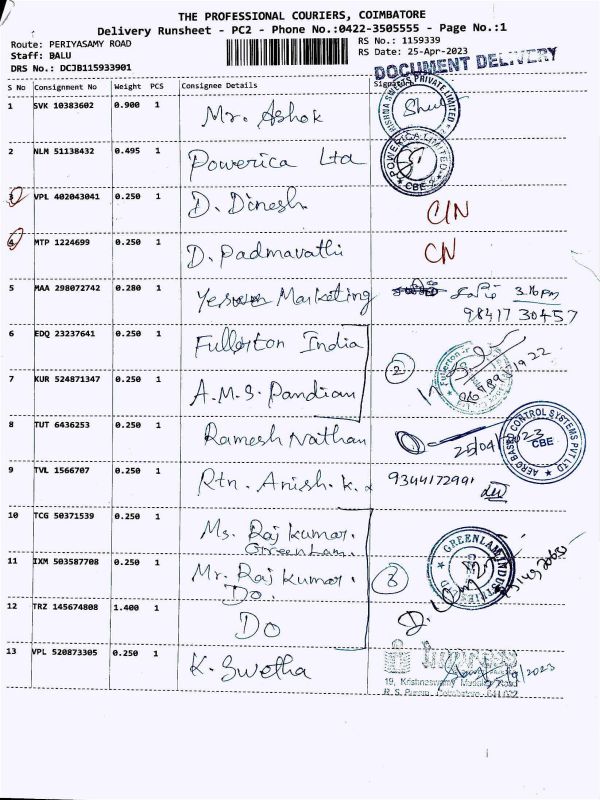 THE PROFESSIONAL COURIERS, COIMBATORE
Delivery Runsheet - PC2 - Phone No.:0422-3505555 - Page No.:1
Route: PERIYASAMY ROAD
RS No.: 1159339
Staff: BALU
RS Date: 25-Apr-2023
DRS No.: DCJB115933901
DOCUMENT DELIVERY
S No Consignment No Weight PCS Consignee Details Signature
1 SVK 10383602 0.900 1 Mr. Ashok
2 NLM 51138432 0.495 1 Powerica Ltd
POWERICA LIMITED CBE-2
3 VPL 402043041 0.250 1 D. Dinesh
4 MTP 1224699 0.250 1 D. Padmavathi CN
5 MAA 298072742 0.280 1 Marketing 3.16 pm
98417 30457
6 EDQ 23237641 0.250 1 Fullerton India
2
7 KUR 524871347 0.250 1 A.M.S. Pandian
8 TUT 6436253 0.250 1 Ramesh Nathan
AERO BASED CONTROL SYSTEMS PVT LTD CBE
9 TVL 1566707 0.250 1 Rtn. Anish. K. 9344172991
10 TCG 50371539 0.250 1 Ms. Raj Kumar.
Greenlam.
GREENLAM INDUSTRIES LTD
11 IXM 503587708 0.250 1 Mr. Raj Kumar.
Do.
3
12 TRZ 145674808 1.400 1 Do
13 VPL 520873305 0.250 1 K. Swetha
Impress
19, Krishnaswamy Mudaliar Road
R. S. Puram, Coimbatore